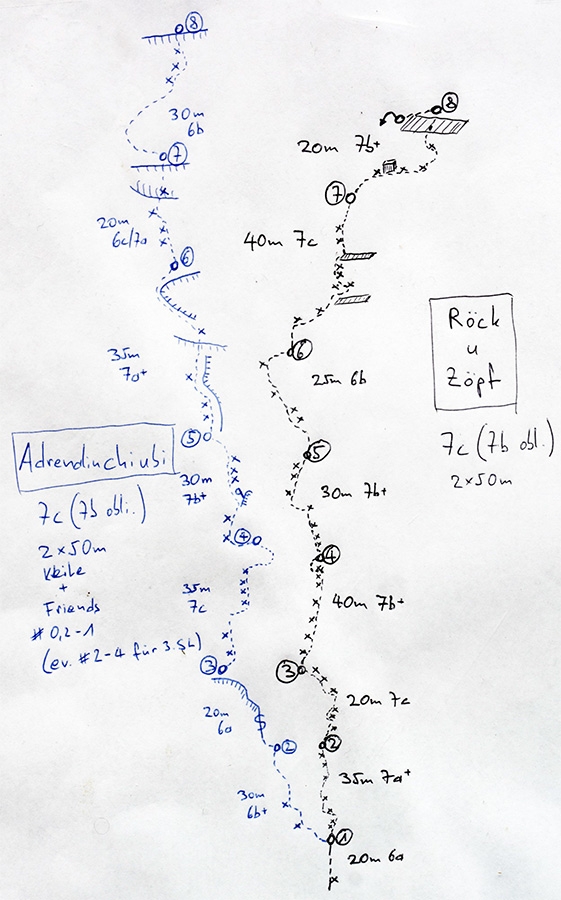 8
30m
6b
7
20m
6c/7a
6
35m
7a+
5
Adrendinchiubi
30m
7b+
7c (7b obli.)
4
2x50m
Keile
+
Friends
# 0,2-1
(ev. #2-4 für 3.SL)
35m
7c
3
20m
6a
2
30m
6b+
8
20m 7b+
7
40m 7c
6
25m 6b
5
30m 7b+
4
40m 7b+
3
20m 7c
2
35m 7a+
1
20m 6a
Röck
u
Zöpf
7c (7b obl.)
2x50m